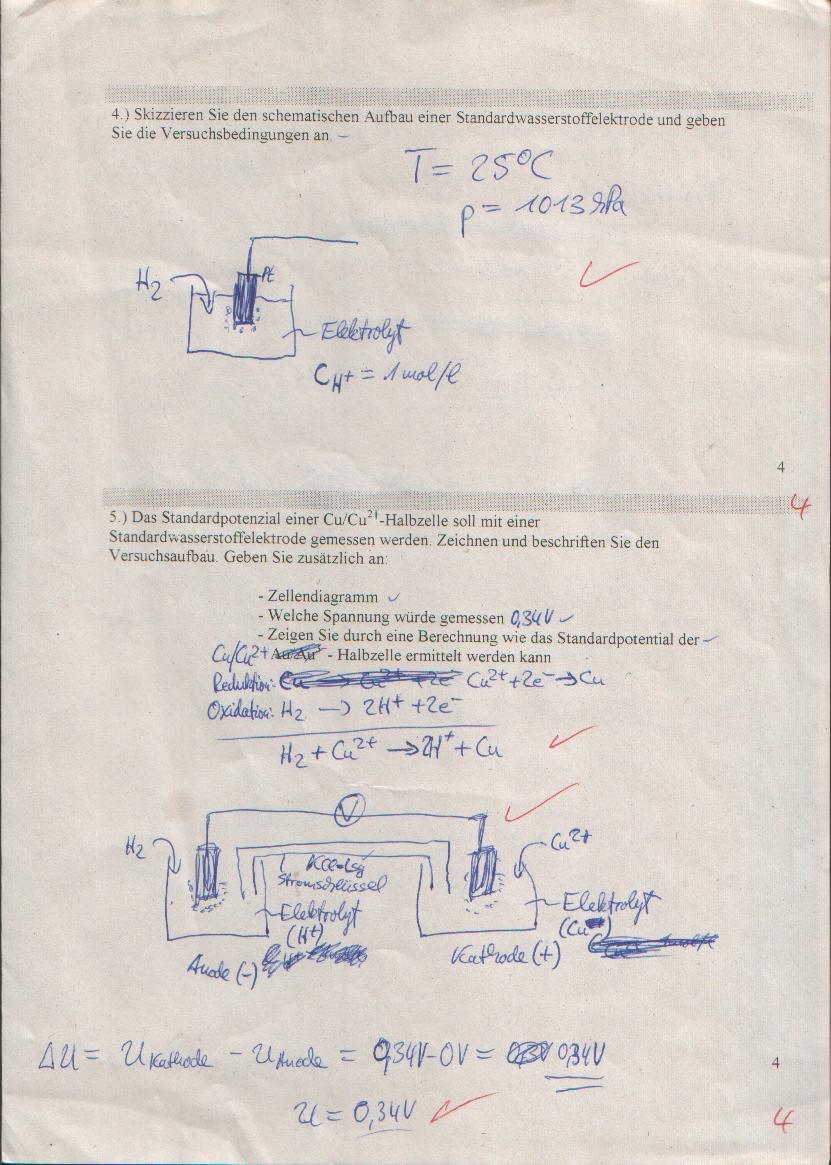 4.) Skizzieren Sie den schematischen Aufbau einer Standardwasserstoffelektrode und geben
Sie die Versuchsbedingungen an.
T = 25°C
p = 1013 hPa
H₂
Pt
Elektrolyt
C H⁺ = 1 mol/l
4
4
5.) Das Standardpotenzial einer Cu/Cu²⁺-Halbzelle soll mit einer
Standardwasserstoffelektrode gemessen werden. Zeichnen und beschriften Sie den
Versuchsaufbau. Geben Sie zusätzlich an:
- Zellendiagramm
- Welche Spannung würde gemessen 0,34V
- Zeigen Sie durch eine Berechnung wie das Standardpotential der
Cu/Cu²⁺ - Halbzelle ermittelt werden kann
Reduktion: Cu²⁺ + 2e⁻ → Cu
Oxidation: H₂ → 2H⁺ + 2e⁻
H₂ + Cu²⁺ → 2H⁺ + Cu
V
H₂
Cu²⁺
KCl-Lsg
Stromschlüssel
Elektrolyt
(H⁺)
Elektrolyt
Anode (-)
Kathode (+)
ΔU = U Kathode - U Anode = 0,34V - 0V = 0,34V
4
U = 0,34V
4